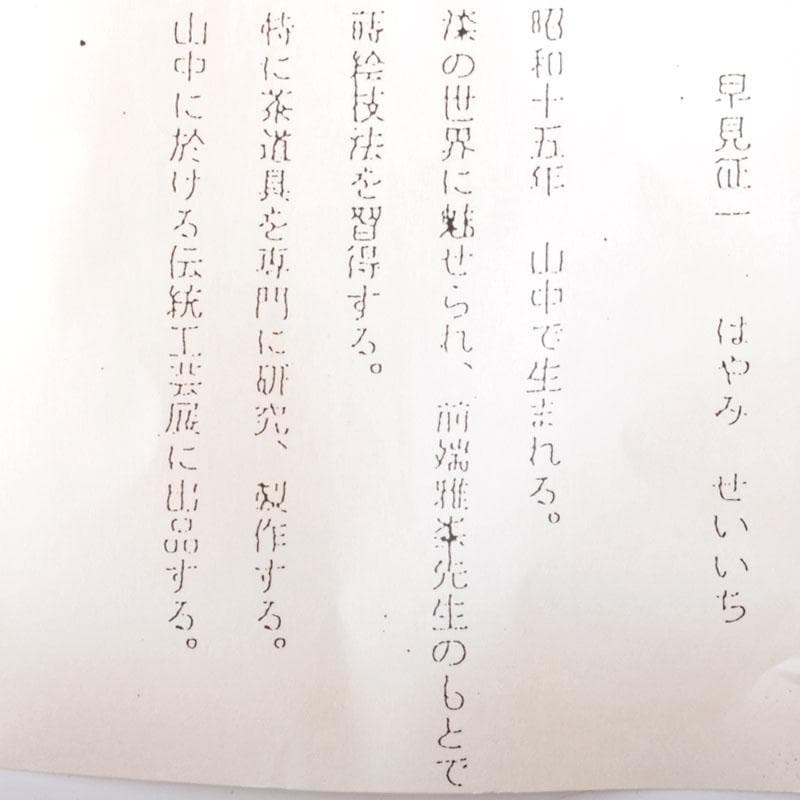 早見征一 はやみ せいいち
昭和十五年 山中で生まれる。
漆の世界に魅せられ、前端雅峯先生のもとで
蒔絵技法を習得する。
特に茶道具を専門に研究、製作する。
山中に於ける伝統工芸展に出品する。